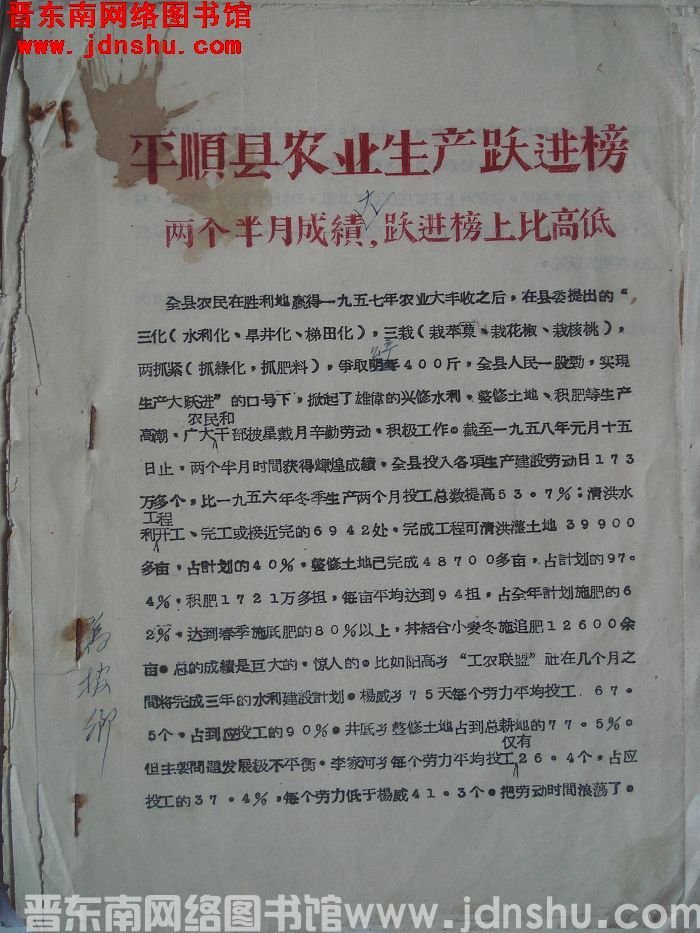 晋东南网络图书馆
www.jdnshu.com
平順县农业生产跃进榜
大
两个半月成績，跃进榜上比高低
全县农民在胜利地赢得一九五七年农业大丰收之后，在县委提出的“
三化（水利化、旱井化、梯田化），三栽（栽苹菓、栽花椒、栽核桃），
两抓紧（抓綠化，抓肥料），爭取明年400斤，全县人民一股勁，实現
生产大跃进”的口号下，掀起了雄偉的兴修水利、整修土地、积肥等生产
农民和
高潮。广大干部披星戴月辛勤劳动、积极工作。截至一九五八年元月十五
日止，两个半月时間获得輝煌成績。全县投入各項生产建設劳动日173
万多个，比一九五六年冬季生产两个月投工总数提高53.7%；清洪水
工程
利开工、完工或接近完的6942处。完成工程可清洪灌土地39900
多亩，占計划的40%。整修土地已完成48700多亩，占計划的97.
4%，积肥1721万多担，每亩平均达到94担，占全年計划施肥的6
2%。达到春季施底肥的80%以上，并結合小麦冬施追肥12600余
亩。总的成績是巨大的、惊人的。比如阳高乡“工农联盟”社在几个月之
間将完成三年的水利建設計划。楊威乡75天每个劳力平均投工，67.
5个，占到应投工的90%。井底乡整修土地占到总耕地的77.5%。
仅有
但主要問題发展极不平衡。李家河乡每个劳力平均投工26.4个，占应
投工的37.4%，每个劳力低于楊威41.3个。把劳动时間浪荡了。
晋东南网络图书馆www.jdnshu.com